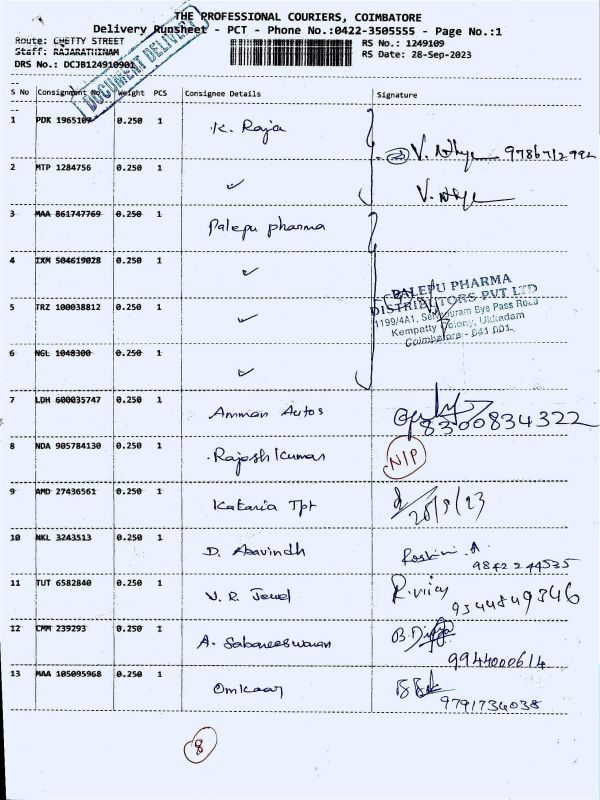 THE PROFESSIONAL COURIERS, COIMBATORE
Delivery Runsheet - PCT - Phone No.:0422-3505555 - Page No.:1
Route: CHETTY STREET RS No.: 1249109
Staff: RAJARATHINAM RS Date: 28-Sep-2023
DRS No.: DCJB124910901
DOCUMENT DELIVERY
S No Consignment No. Weight PCS Consignee Details Signature
1 PDK 1965107 0.250 1 K. Raja
9786712992
2 MTP 1284756 0.250 1 ✓
3 MAA 861747769 0.250 1 Palepu pharma
4 IXM 504619028 0.250 1 ✓
PALEPU PHARMA
DISTRIBUTORS PVT LTD
5 TRZ 100038812 0.250 1 ✓
1199/4A1, Bye Pass Road
Kempatty Colony, Ukkadam
Coimbatore - 641 001.
6 NGL 1048300 0.250 1 ✓
7 LDH 600035747 0.250 1 Amman Autos
8300834322
8 NDA 905784130 0.250 1 Rajesh Kumar N/P
9 AMD 27436561 0.250 1 Kataria Tpt 28/9/23
10 NKL 3243513 0.250 1 D. Aravindh
9842244535
11 TUT 6582840 0.250 1 V. R. Jewel
9344849346
12 CMM 239293 0.250 1 A. Sabareeswaran
9944000614
13 MAA 105095968 0.250 1 Omkaar
9791734038
8